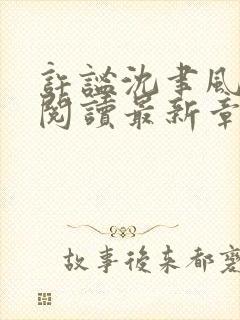 許謐沈聿風
閱讀最新章
故事後來都